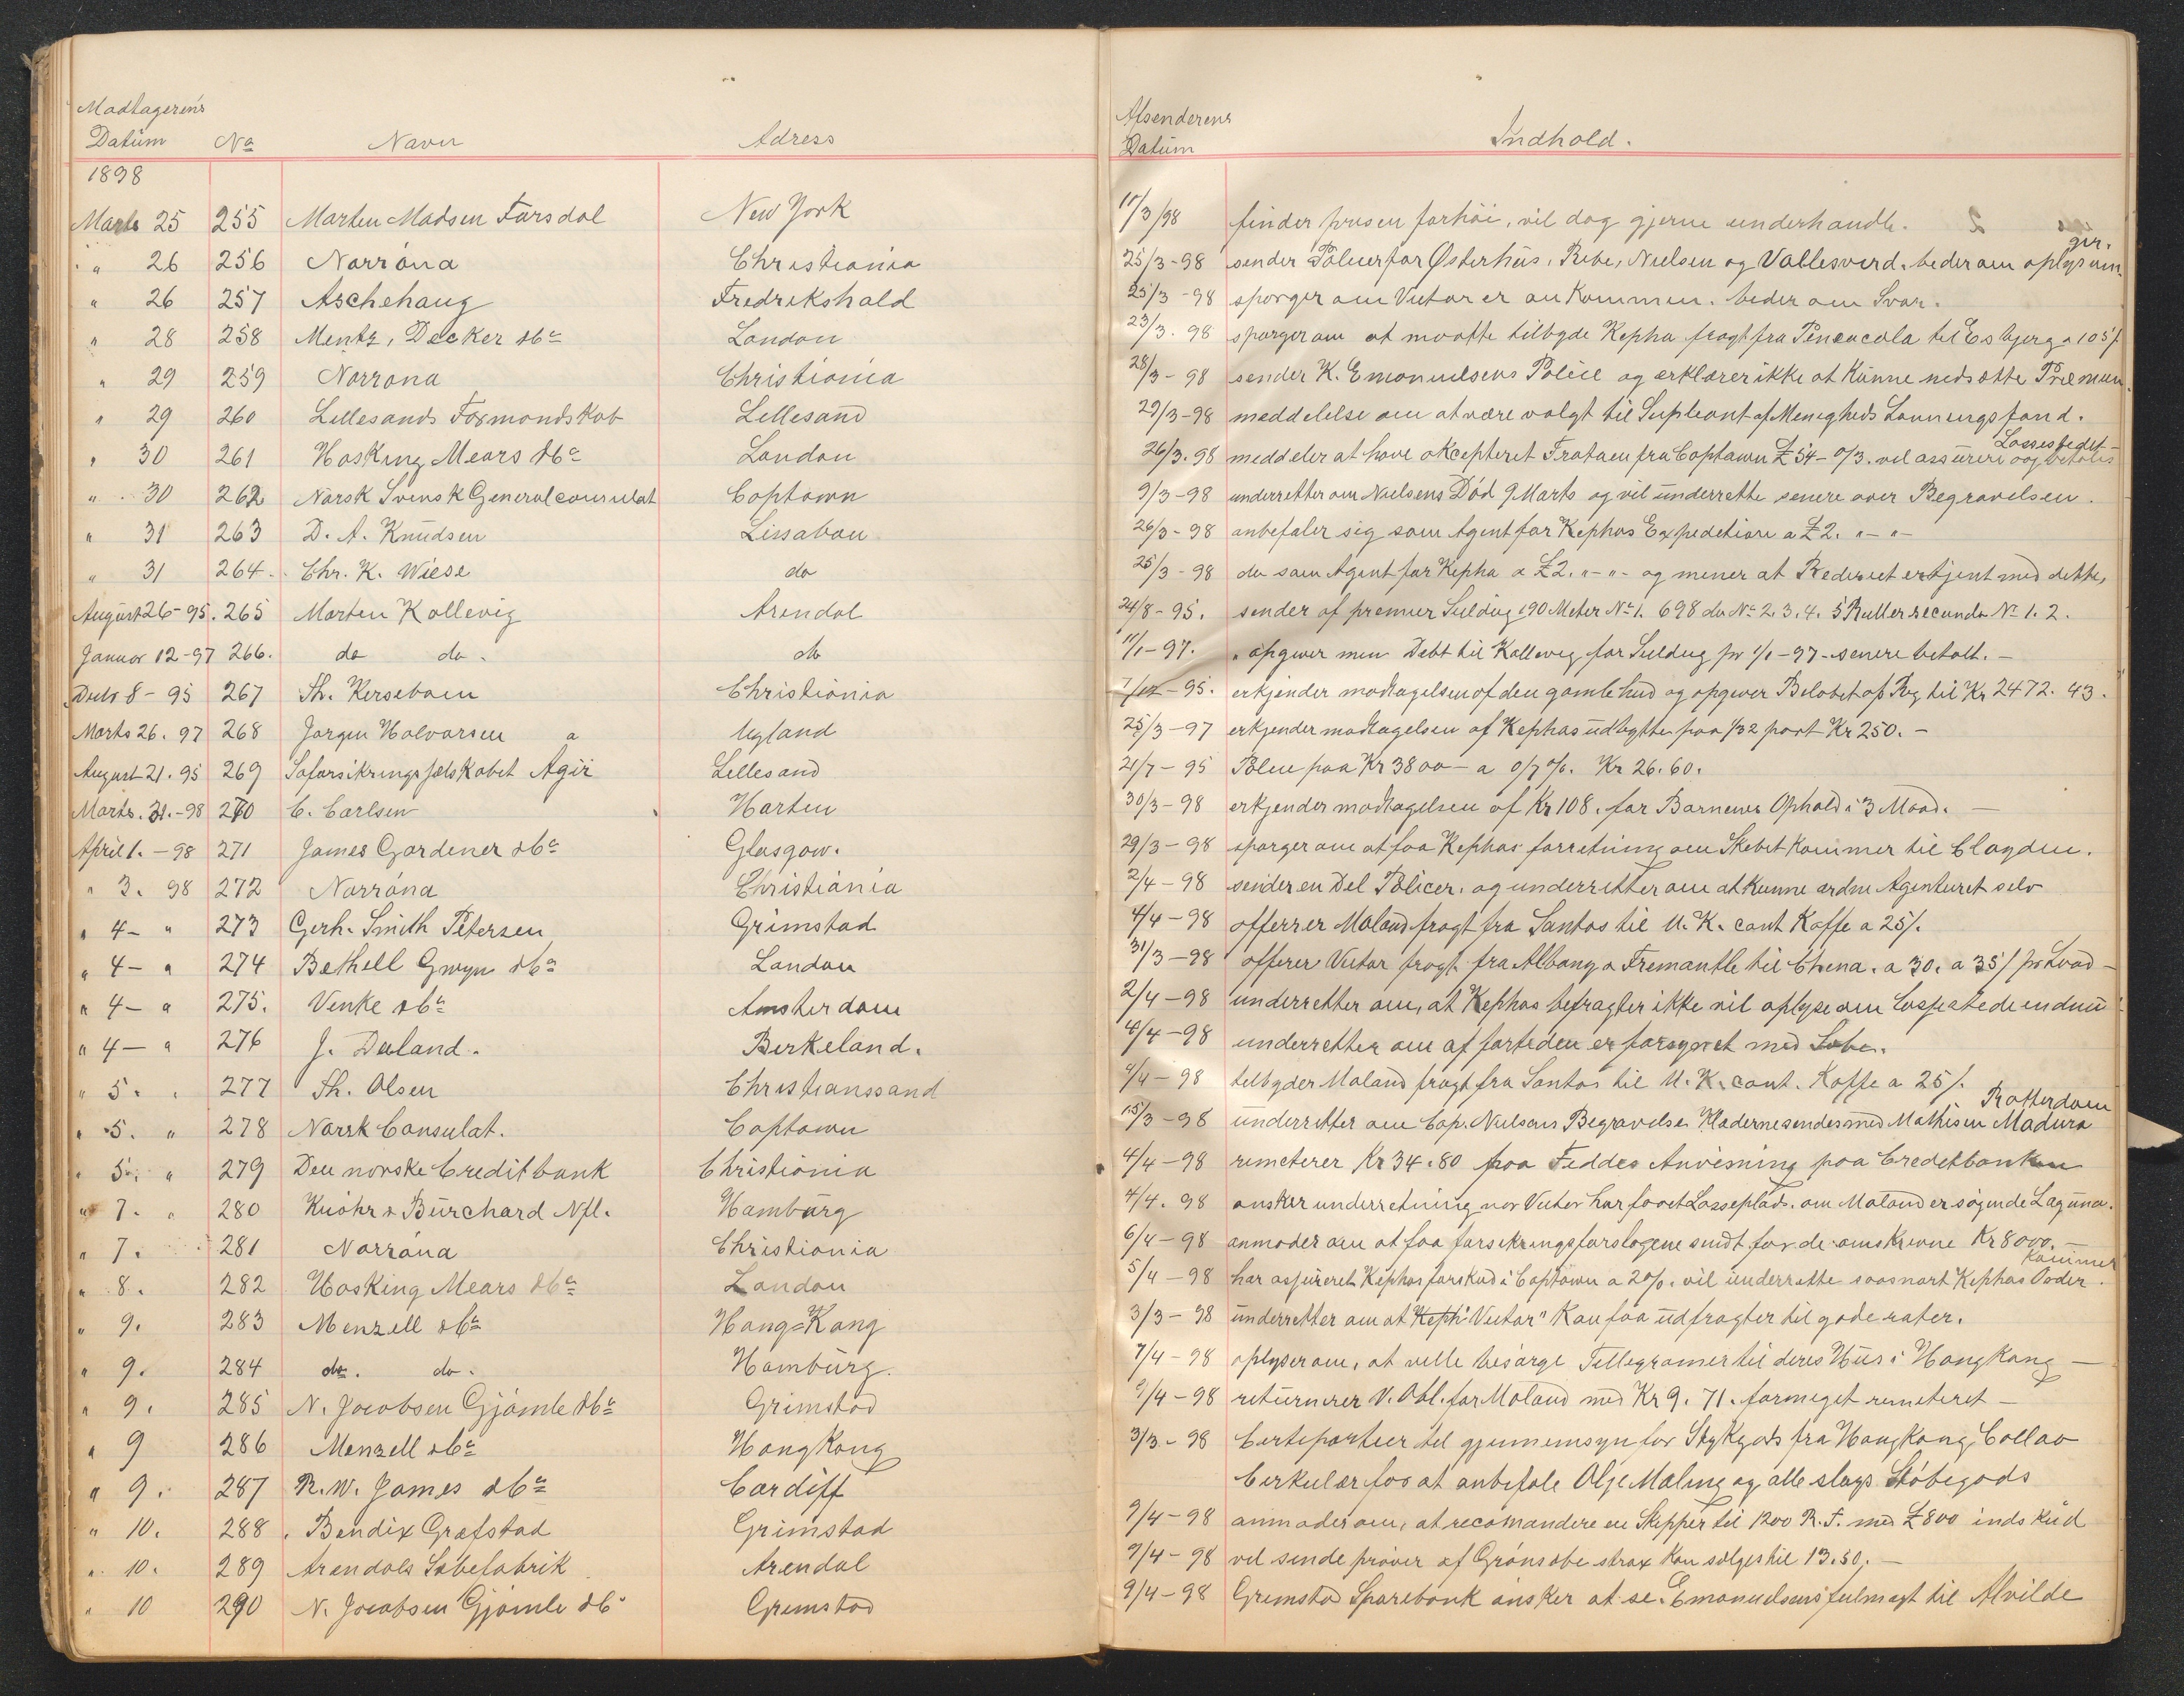 Modtagerens
Datum No Navn Adress
1898
Marts 25 255 Marten Madsen Fursdal New York
" 26 256 Norróna Christiania
" 26 257 Aschehaug Fredrikshald
" 28 258 Mentz, Decker & Co London
" 29 259 Norrona Christiania
" 29 260 Lillesands Formandskab Lillesand
" 30 261 Hosking Mears & Co London
" 30 262 Norsk Svensk Generalconsulat Captown
" 31 263 D. A. Knudsen Lissabon
" 31 264. Chr. K. Wiese do
August 26-95. 265 Morten Kallevig Arendal
Januar 12-97 266. do do. do
Decbr 8-95 267 Th. Kersebom Christiania
Marts 26. 97 268 Jorgen Halvorsen a Ugland
August 21. 95 269 Soforsikringsselskabet Agir Lillesand
Marts. 31.-98 270 C. Carlsen Horten
April 1.-98 271 James Gardener & Co Glasgow.
" 3. 98 272 Norróna Christiania
" 4- " 273 Gerh. Smith Petersen Grimstad
" 4- " 274 Bethell Gwyn & Co London
" 4- " 275. Venke & Co Amsterdam
" 4- " 276 J. Dееland. Birkeland.
" 5. . 277 Th. Olsen Christianssand
" 5. " 278 Norsk Consulat. Captown
" 5. " 279 Den norske Creditbank Christiania
" 7. " 280 Knöhr & Burchard Nfl. Hamburg
" 7. 281 Norróna Christiania
" 8. 282 Hosking Mears & Co London
" 9. 283 Menzell & Co Hong=Kong
" 9. 284 do. do. Hamburg.
" 9. 285 N. Jacobsen Gjómle & Co Grimstad
" 9 286 Menzell & Co HongKong
" 9. 287 R. W. James & Co Cardiff
" 10. 288. Bendix Grefstad Grimstad
" 10. 289 Arendals Sæbefabrik Arendal
" 10 290 N. Jacobsen Gjómle & Co Grimstad
Afsenderens
Datum Indhold.
11/3/98 finder prisen forhöi, vil dog gjerne underhandle.
25/3-98 sender Policer for Østerhus, Ribe, Nielsen og Vallesverd. beder om oplysnin-
ger.
25/3-98 sporger om Victor er ankommen. beder om Svar.
23/3. 98 sporger om at maatte tilbyde Kepha fragt fra Pensacola til Esbjerg a 105/
28/3-98 sender K. Emanuelsens Police og erklærer ikke at kunne nedsætte Præmien.
29/3-98 meddelelse om at være valgt til Supleant af Menigheds Lønningsfond.
26/3. 98 meddeler at have akcepteret Trataen fra Captawn £54-0/3. vil assurere og betales
Lossested
9/3-98 underretter om Nielsens Död 9 Marts og vil underrette senere over Begravelsen.
26/3-98 anbefaler sig som Agent for Kephas Expedition a £2. "-"-
25/3-98 do som Agent for Kepha a £2. "-"- og mener at Rederiet er tjent med dette,
24/8-95. sender af premier Seildug 190 Meter No 1. 698 do No 2. 3. 4. 5 Ruller secunda No 1. 2.
11/1-97. " opgiver min Debt til Kallevig for Seildug pr 1/1-97-senere betalt.-
7/12-95. erkjender modtagelsen af den gamle hud og opgiver Belobet af Rg til Kr 2472. 43.
25/3-97 erkjender modtagelsen af Kephas udbytte paa 1/32 part Kr 250.-
21/7-95 Police paa Kr 3800- a 0/7 %. Kr 26. 60.
30/3-98 erkjender modtagelsen af Kr 108. for Barnenes Ophold i 3 Maad.-
29/3-98 sporger om at faa Kephas forretning om Skibet kommer til Clagden.
2/4-98 sender en Del Policer. og underretter om at kunne ordne Agenturet selv
4/4-98 offerer Moland fragt fra Santos til U.K. cont Kaffe a 25/.
31/3-98 offerer Victor fragt fra Albany a Fremantle til China. a 30. a 35/ pr Load-
2/4-98 underretter om, at Kephas befragter ikke vil oplyse om endnu
4/4-98 underretter om af fortiden er forsynet med Sæbe.
4/4-98 tilbyder Moland fragt fra Santos til U.K. cont. Kaffe a 25/.
15/3-98 underretter om Cap. Nielsens Begravelse. Klæderne sendes med Mathisen Madura
Rotterdam
4/4-98 remeterer Kr 34. 80 paa Feddes Anvisning paa Creditbanken
4/4. 98 onsker underretning nor Victor har faaet Losseplads. om Moland er sögende Laguna.
6/4-98 anmoder om at faa forsikringsforslagene sendt for de omskrevne Kr 8000.-
5/4-98 har assureret Kephas forskud i Captown a 2%. vil underrette saasnart Kephas Order.
kommer
3/3-98 underretter om at Keph "Victor" Kan faa udfragter til gode rater.
7/4-98 oplyser om, at velle besørge Tellegramer til deres Hus i Hongkong-
9/4-98 returnerer V. Obl. for Moland med Kr 9. 71. formeget remeteret-
3/3-98 Certepartier til gjennemsyn for Stykgods fra Hongkong, Callao
Cirkulær for at anbefale Olje Maling og alle slags Stöbegods
9/4-98 anmoder om, at recomandere en Skipper til 1200 R.T. med £800 indskud
9/4-98 vil sende pröver af Grönsæbe strax kan sælges til 13. 50.-
9/4-98 Grimstad Sparebank önsker at se. Emanuelsens fulmagt til Alvilde